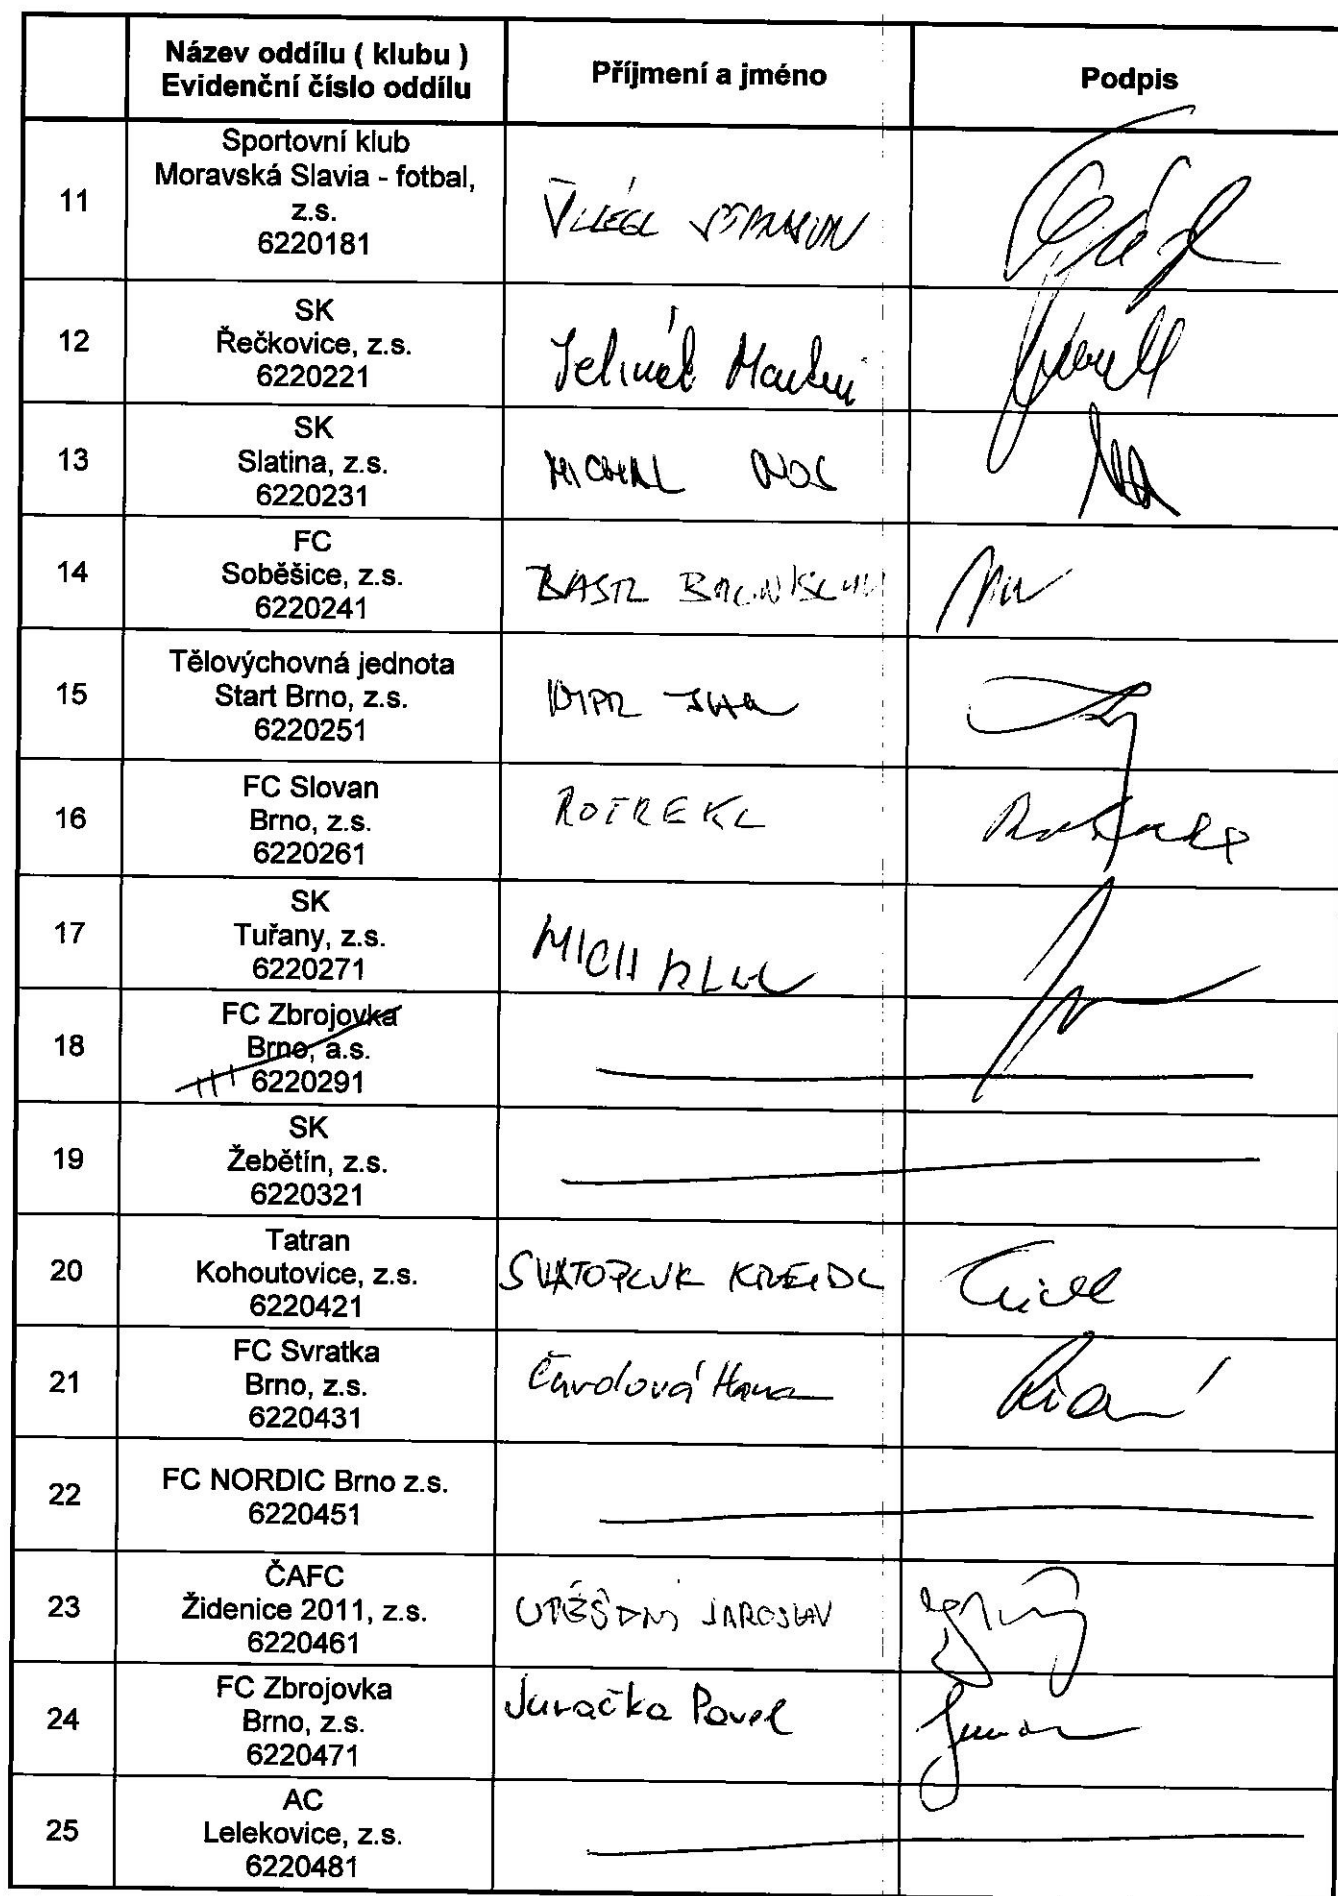 Název oddílu ( klubu )
Evidenční číslo oddílu
Příjmení a jméno
Podpis
11
Sportovní klub
Moravská Slavia - fotbal,
z.s.
6220181
12
SK
Řečkovice, z.s.
6220221
Jelínek Martin
13
SK
Slatina, z.s.
6220231
MICHAL
14
FC
Soběšice, z.s.
6220241
BASTL
15
Tělovýchovná jednota
Start Brno, z.s.
6220251
16
FC Slovan
Brno, z.s.
6220261
ROTREKL
17
SK
Tuřany, z.s.
6220271
18
FC Zbrojovka
Brno, a.s.
6220291
19
SK
Žebětín, z.s.
6220321
20
Tatran
Kohoutovice, z.s.
6220421
SVATOPLUK KREJDL
21
FC Svratka
Brno, z.s.
6220431
Hana
22
FC NORDIC Brno z.s.
6220451
23
ČAFC
Židenice 2011, z.s.
6220461
UTĚŠENÝ JAROSLAV
24
FC Zbrojovka
Brno, z.s.
6220471
Juračka Pavel
25
AC
Lelekovice, z.s.
6220481